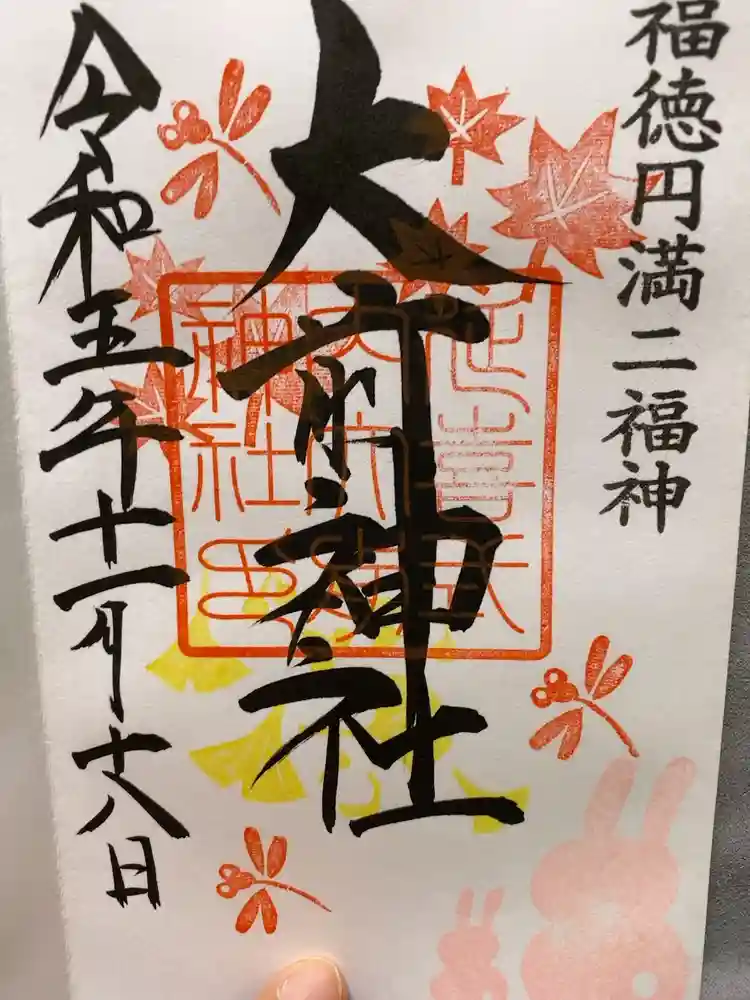 福徳円満二福神
大前神社
令和五年十一月十八日
神社印